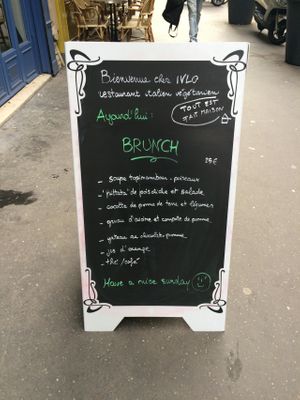 Bienvenue chez IVLO
restaurant italien végétarien
TOUT EST
FAIT MAISON
Aujourd'hui :
BRUNCH
25€
- soupe topinambour - poireaux
- "frittata" de pois chiche et salade
- cocotte de pomme de terre et légumes
- gruau d'avoine et compote de pomme
- gâteau au chocolat-pomme
- jus d'orange
- thé/café
Have a nice sunday